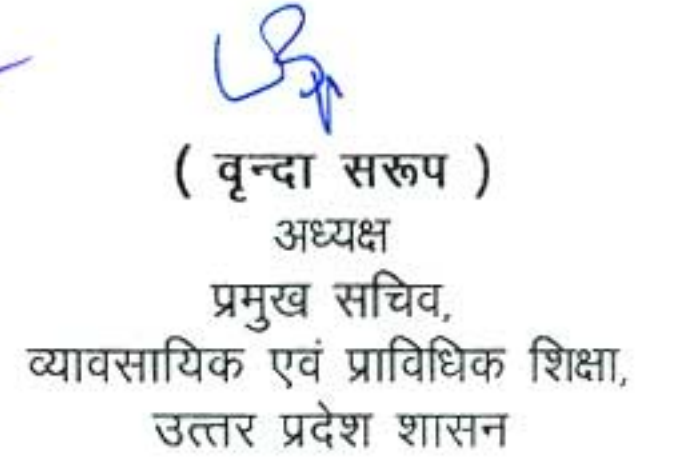 ( वृन्दा सरूप )
अध्यक्ष
प्रमुख सचिव,
व्यावसायिक एवं प्राविधिक शिक्षा,
उत्तर प्रदेश शासन